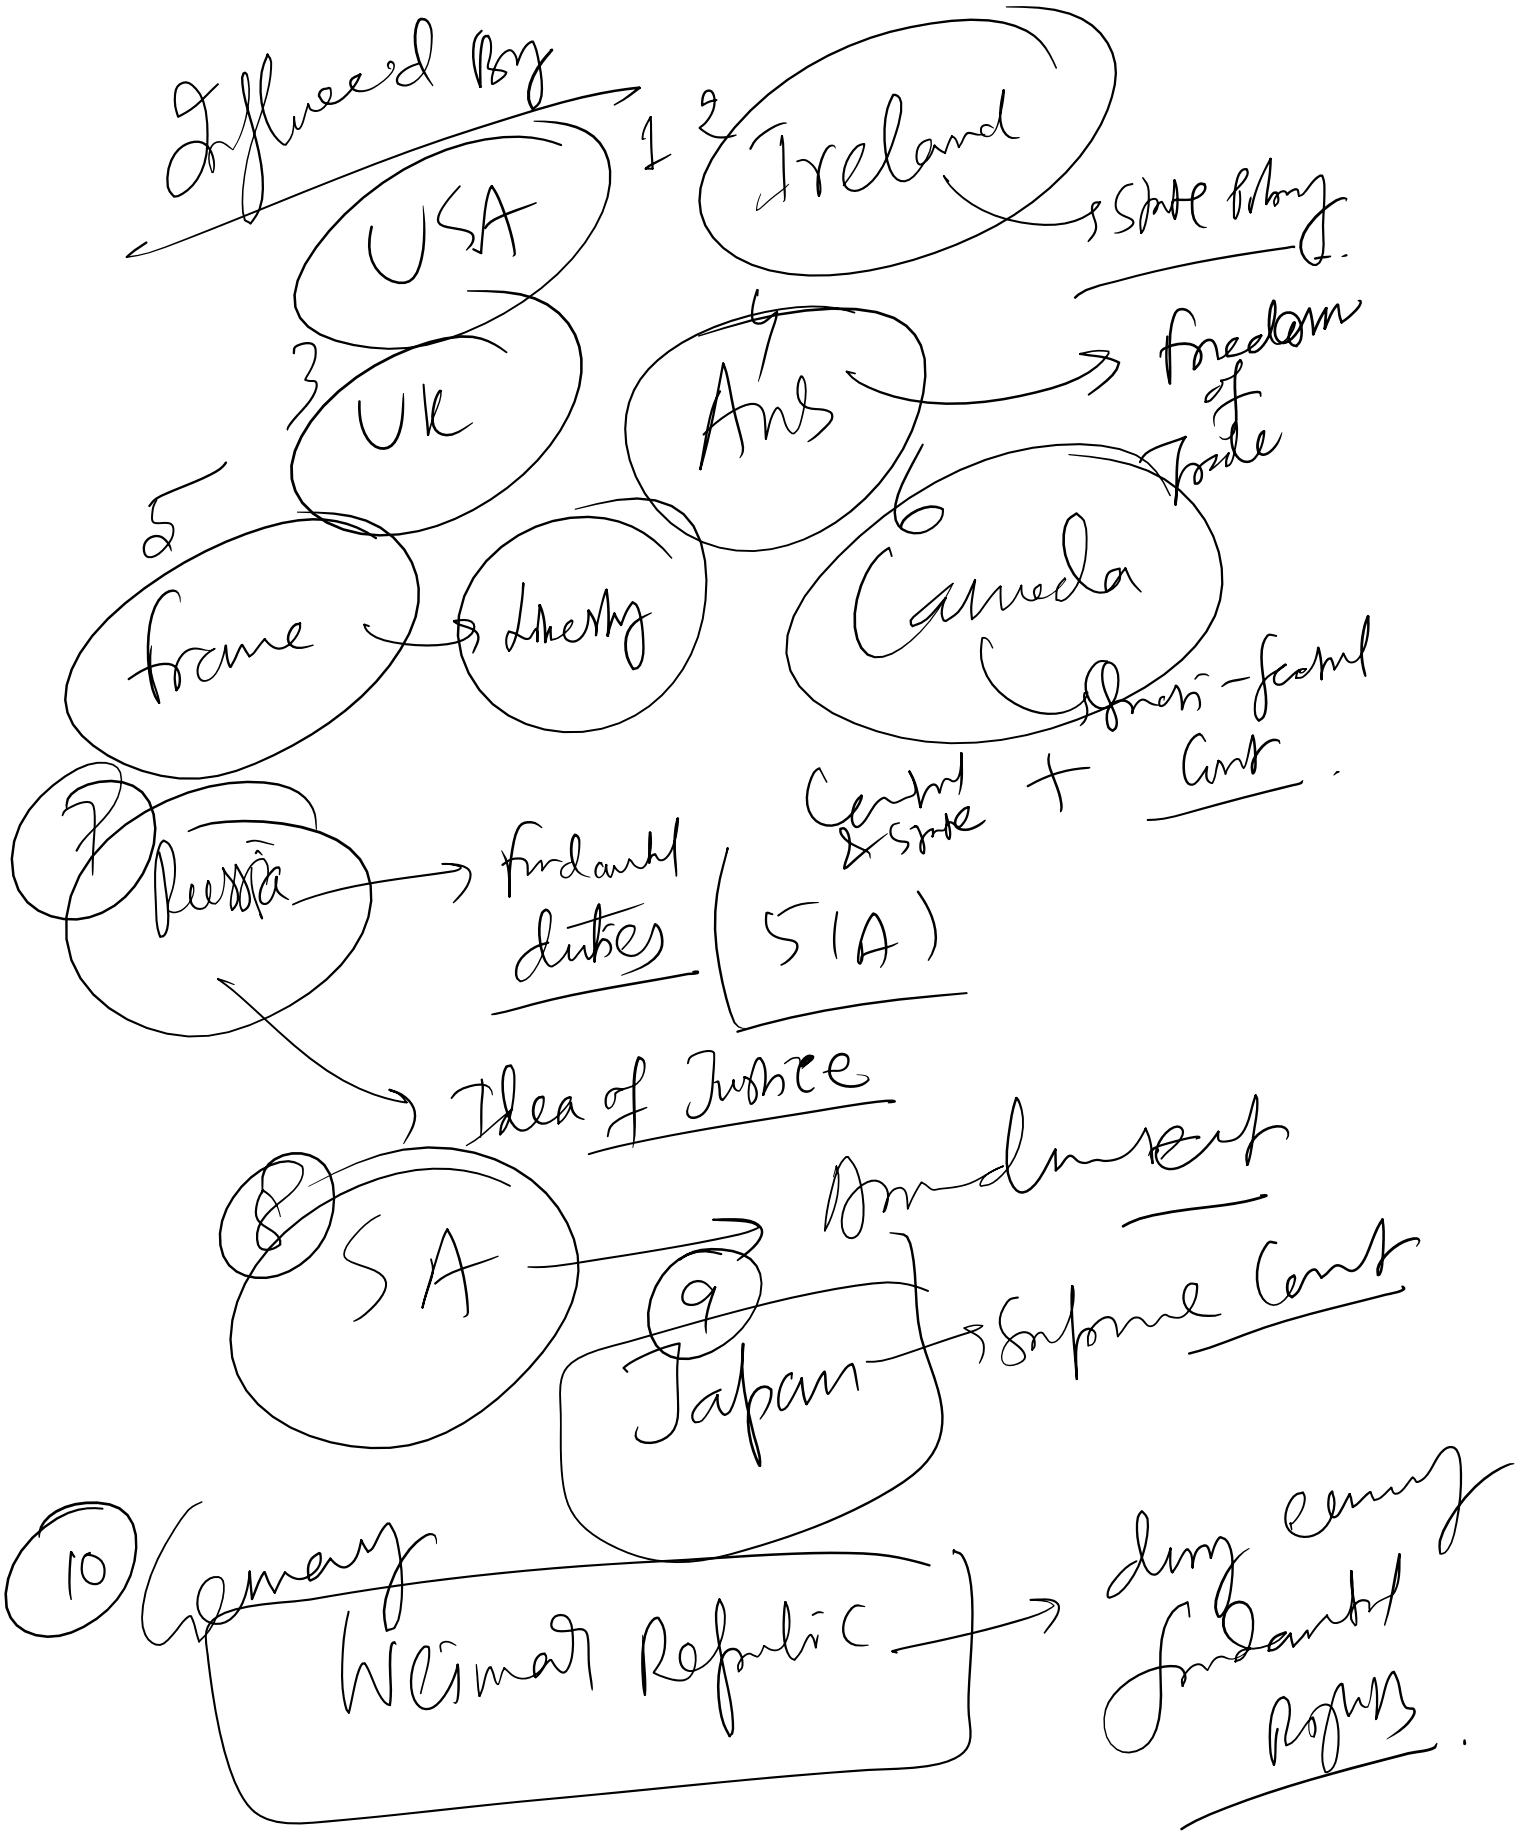 Influeed By
1
USA
2
Ireland
State Policy.
3
UK
4
Aus
Freedom
of
Trade
5
France
Liberty
6
Canada
Quasi-fedral
Cont.
+
Central
& State
7
Russia
fundamtl
duties
51(A)
Idea of Justice
8
SA
Amendment
9
Japan
Supreme Court
10
Germany
Weimar Republic
fundamtl
Rights.